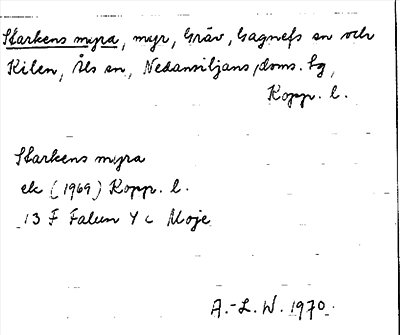 Starkens myra, myr, Gräv, Gagnefs sn och
Kilen, Åls sn, Nedansiljans doms. hg,
Kopp. l.
Starkens myra
ek (1969) Kopp. l.
13 F Falun 4 c Moje
A.-L. W. 1970